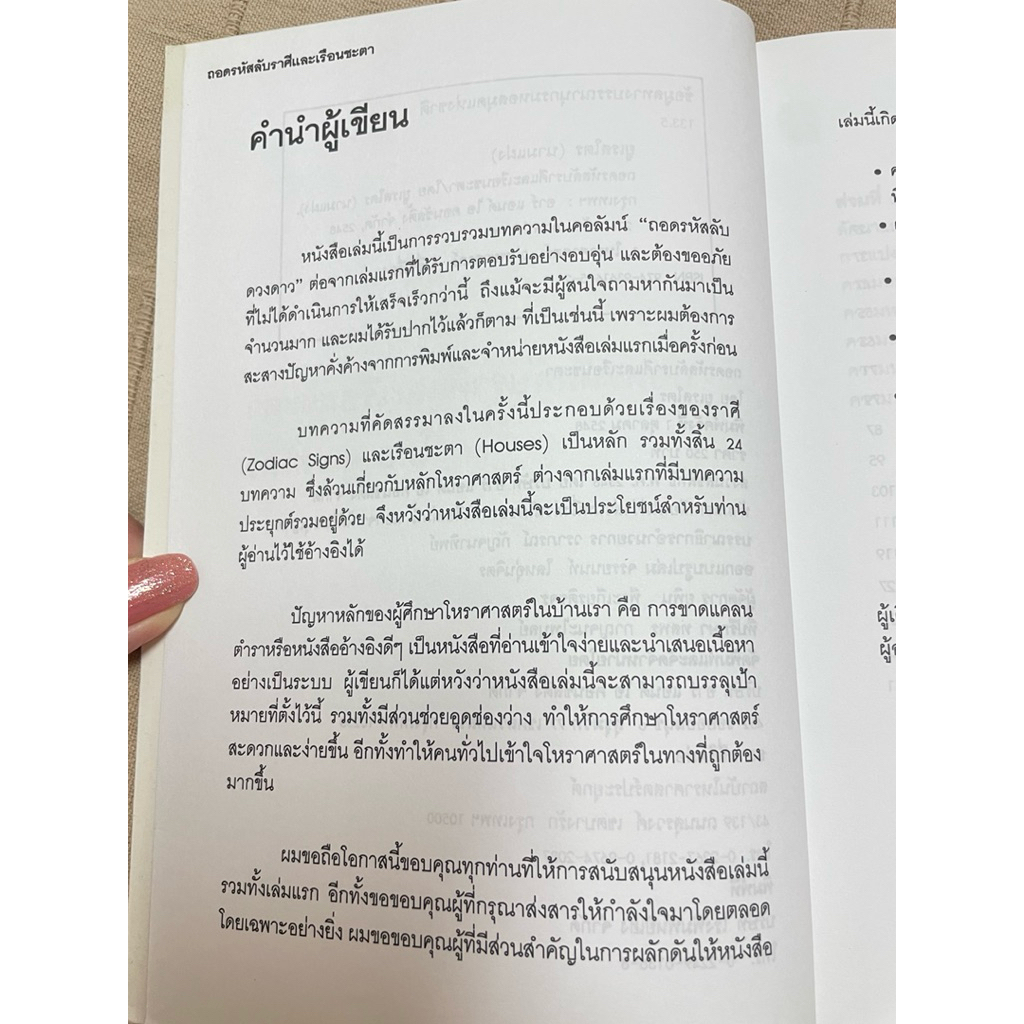 ถอดรหัสลับราศีและเรือนชะตา
คำนำผู้เขียน
หนังสือเล่มนี้เป็นการรวบรวมบทความในคอลัมน์ “ถอดรหัสลับ
ดวงดาว” ต่อจากเล่มแรกที่ได้รับการตอบรับอย่างอบอุ่น และต้องขออภัย
ที่ไม่ได้ดำเนินการให้เสร็จเร็วกว่านี้ ถึงแม้จะมีผู้สนใจถามหากันมาเป็น
จำนวนมาก และผมได้รับปากไว้แล้วก็ตาม ที่เป็นเช่นนี้ เพราะผมต้องการ
สะสางปัญหาคั่งค้างจากการพิมพ์และจำหน่ายหนังสือเล่มแรกเมื่อครั้งก่อน
บทความที่คัดสรรมาลงในครั้งนี้ประกอบด้วยเรื่องของราศี
(Zodiac Signs) และเรือนชะตา (Houses) เป็นหลัก รวมทั้งสิ้น 24
บทความ ซึ่งล้วนเกี่ยวกับหลักโหราศาสตร์ ต่างจากเล่มแรกที่มีบทความ
ประยุกต์รวมอยู่ด้วย จึงหวังว่าหนังสือเล่มนี้จะเป็นประโยชน์สำหรับท่าน
ผู้อ่านไว้ใช้อ้างอิงได้
ปัญหาหลักของผู้ศึกษาโหราศาสตร์ในบ้านเรา คือ การขาดแคลน
ตำราหรือหนังสืออ้างอิงดีๆ เป็นหนังสือที่อ่านเข้าใจง่ายและนำเสนอเนื้อหา
อย่างเป็นระบบ ผู้เขียนก็ได้แต่หวังว่าหนังสือเล่มนี้จะสามารถบรรลุเป้า
หมายที่ตั้งไว้นี้ รวมทั้งมีส่วนช่วยอุดช่องว่าง ทำให้การศึกษาโหราศาสตร์
สะดวกและง่ายขึ้น อีกทั้งทำให้คนทั่วไปเข้าใจโหราศาสตร์ในทางที่ถูกต้อง
มากขึ้น
ผมขอถือโอกาสนี้ขอบคุณทุกท่านที่ให้การสนับสนุนหนังสือเล่มนี้
รวมทั้งเล่มแรก อีกทั้งขอขอบคุณผู้ที่กรุณาส่งสารให้กำลังใจมาโดยตลอด
โดยเฉพาะอย่างยิ่ง ผมขอขอบคุณผู้ที่มีส่วนสำคัญในการผลักดันให้หนังสือ
เล่มนี้เกิด